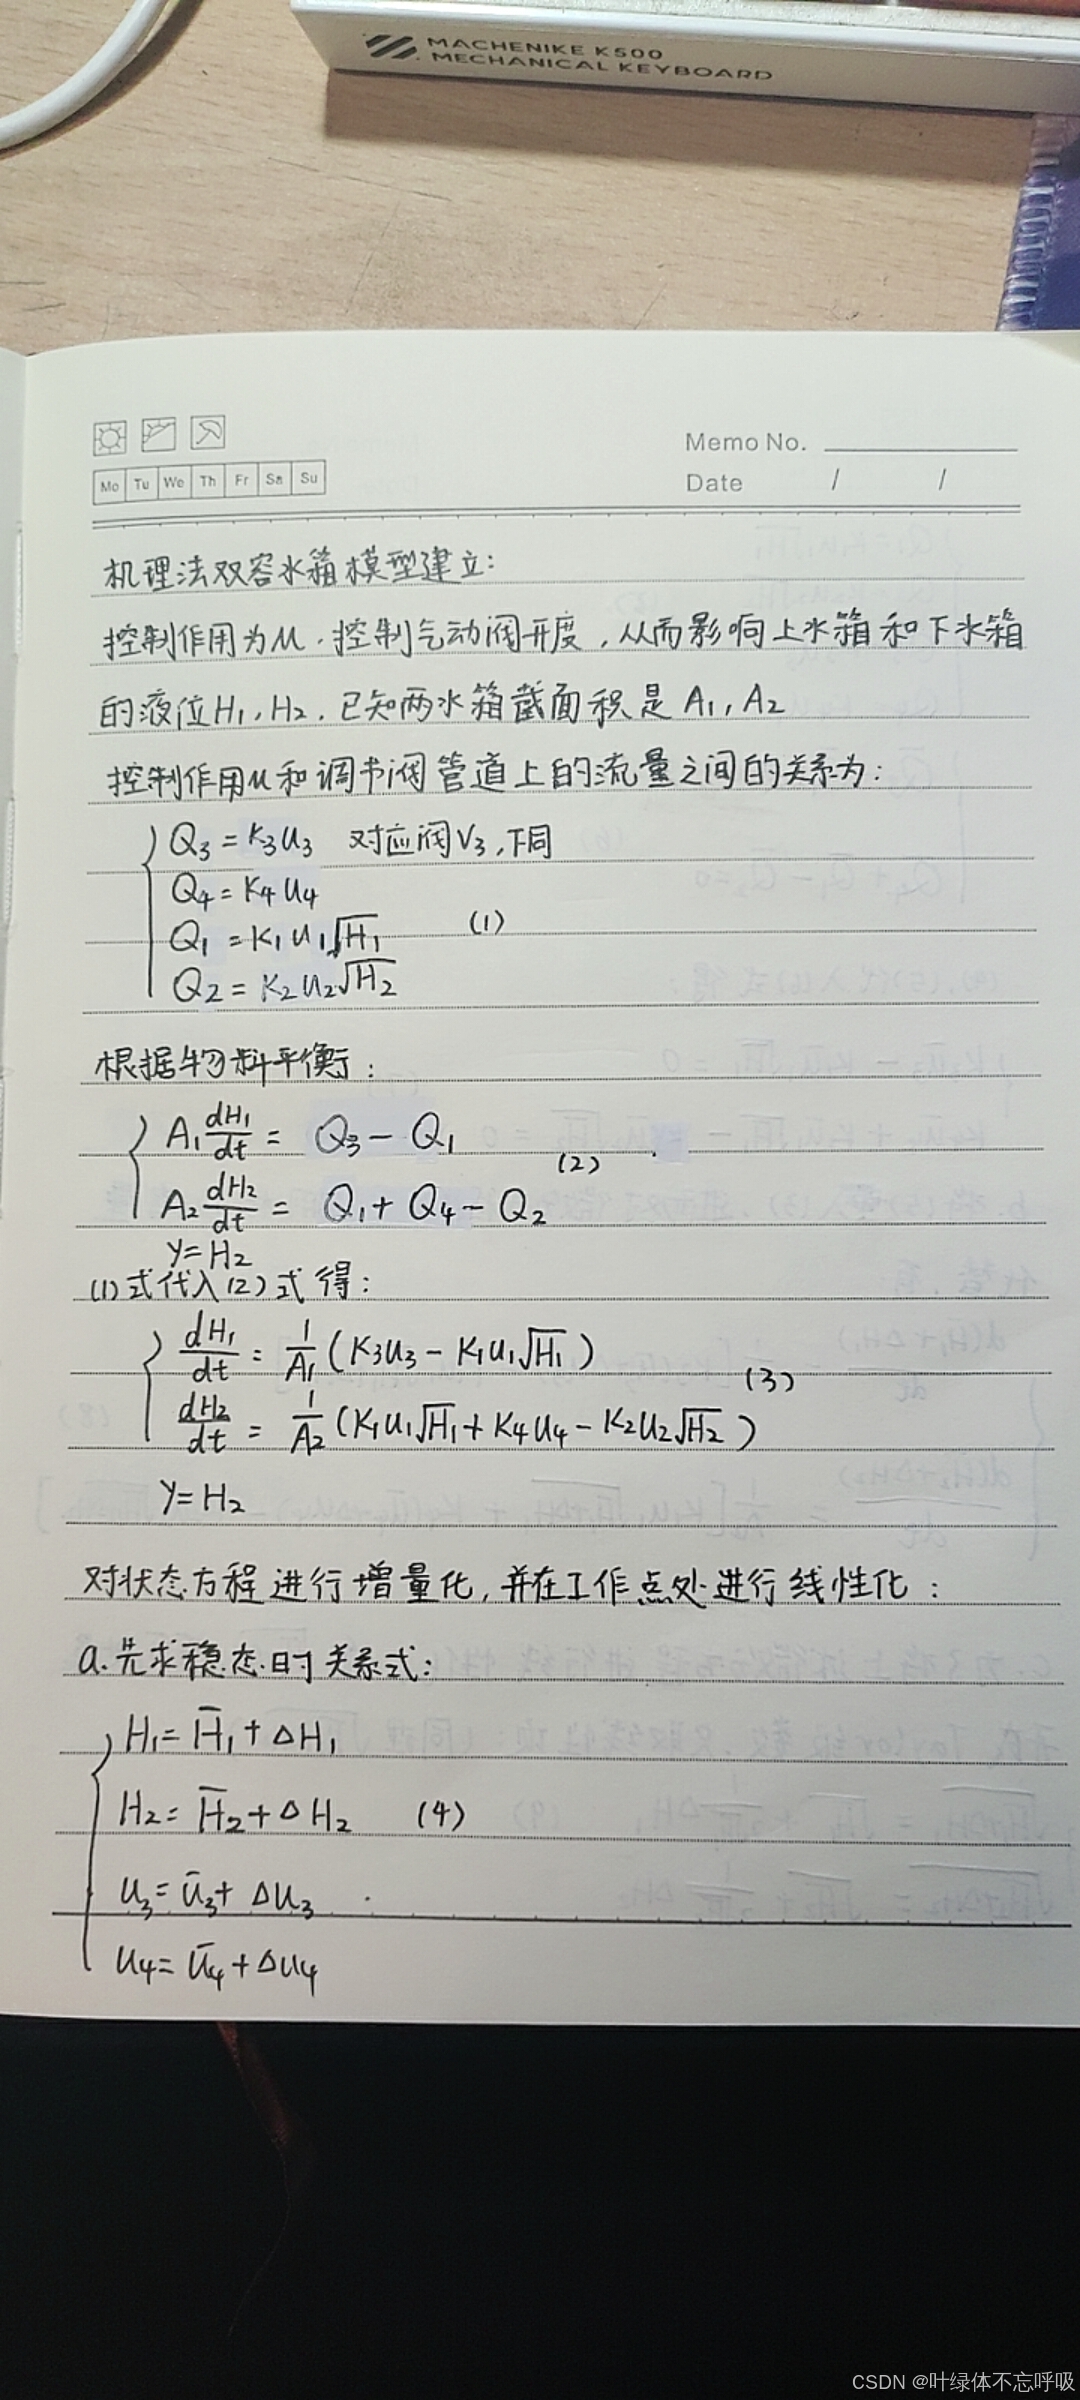 MACHENIKE K500
MECHANICAL KEYBOARD
Memo No.
Mo Tu We Th Fr Sa Su
Date / /
机理法双容水箱模型建立:
控制作用为u,控制气动阀开度,从而影响上水箱和下水箱
的液位H₁,H₂,已知两水箱截面积是 A₁,A₂
控制作用u和调节阀管道上的流量之间的关系为:
Q₃=K₃u₃ 对应阀V₃,下同
Q₄=K₄u₄
Q₁=K₁u₁√H₁ (1)
Q₂=K₂u₂√H₂
根据物料平衡:
A₁dH₁/dt = Q₃-Q₁
(2)
A₂dH₂/dt = Q₁+Q₄-Q₂
y=H₂
(1)式代入(2)式得:
dH₁/dt = 1/A₁(K₃u₃-K₁u₁√H₁)
(3)
dH₂/dt = 1/A₂(K₁u₁√H₁+K₄u₄-K₂u₂√H₂)
y=H₂
对状态方程进行增量化,并在工作点处进行线性化:
a.先求稳态时关系式:
H₁=H̄₁+ΔH₁
H₂=H̄₂+ΔH₂ (4)
u₃=ū₃+Δu₃
u₄=ū₄+Δu₄
CSDN @叶绿体不忘呼吸